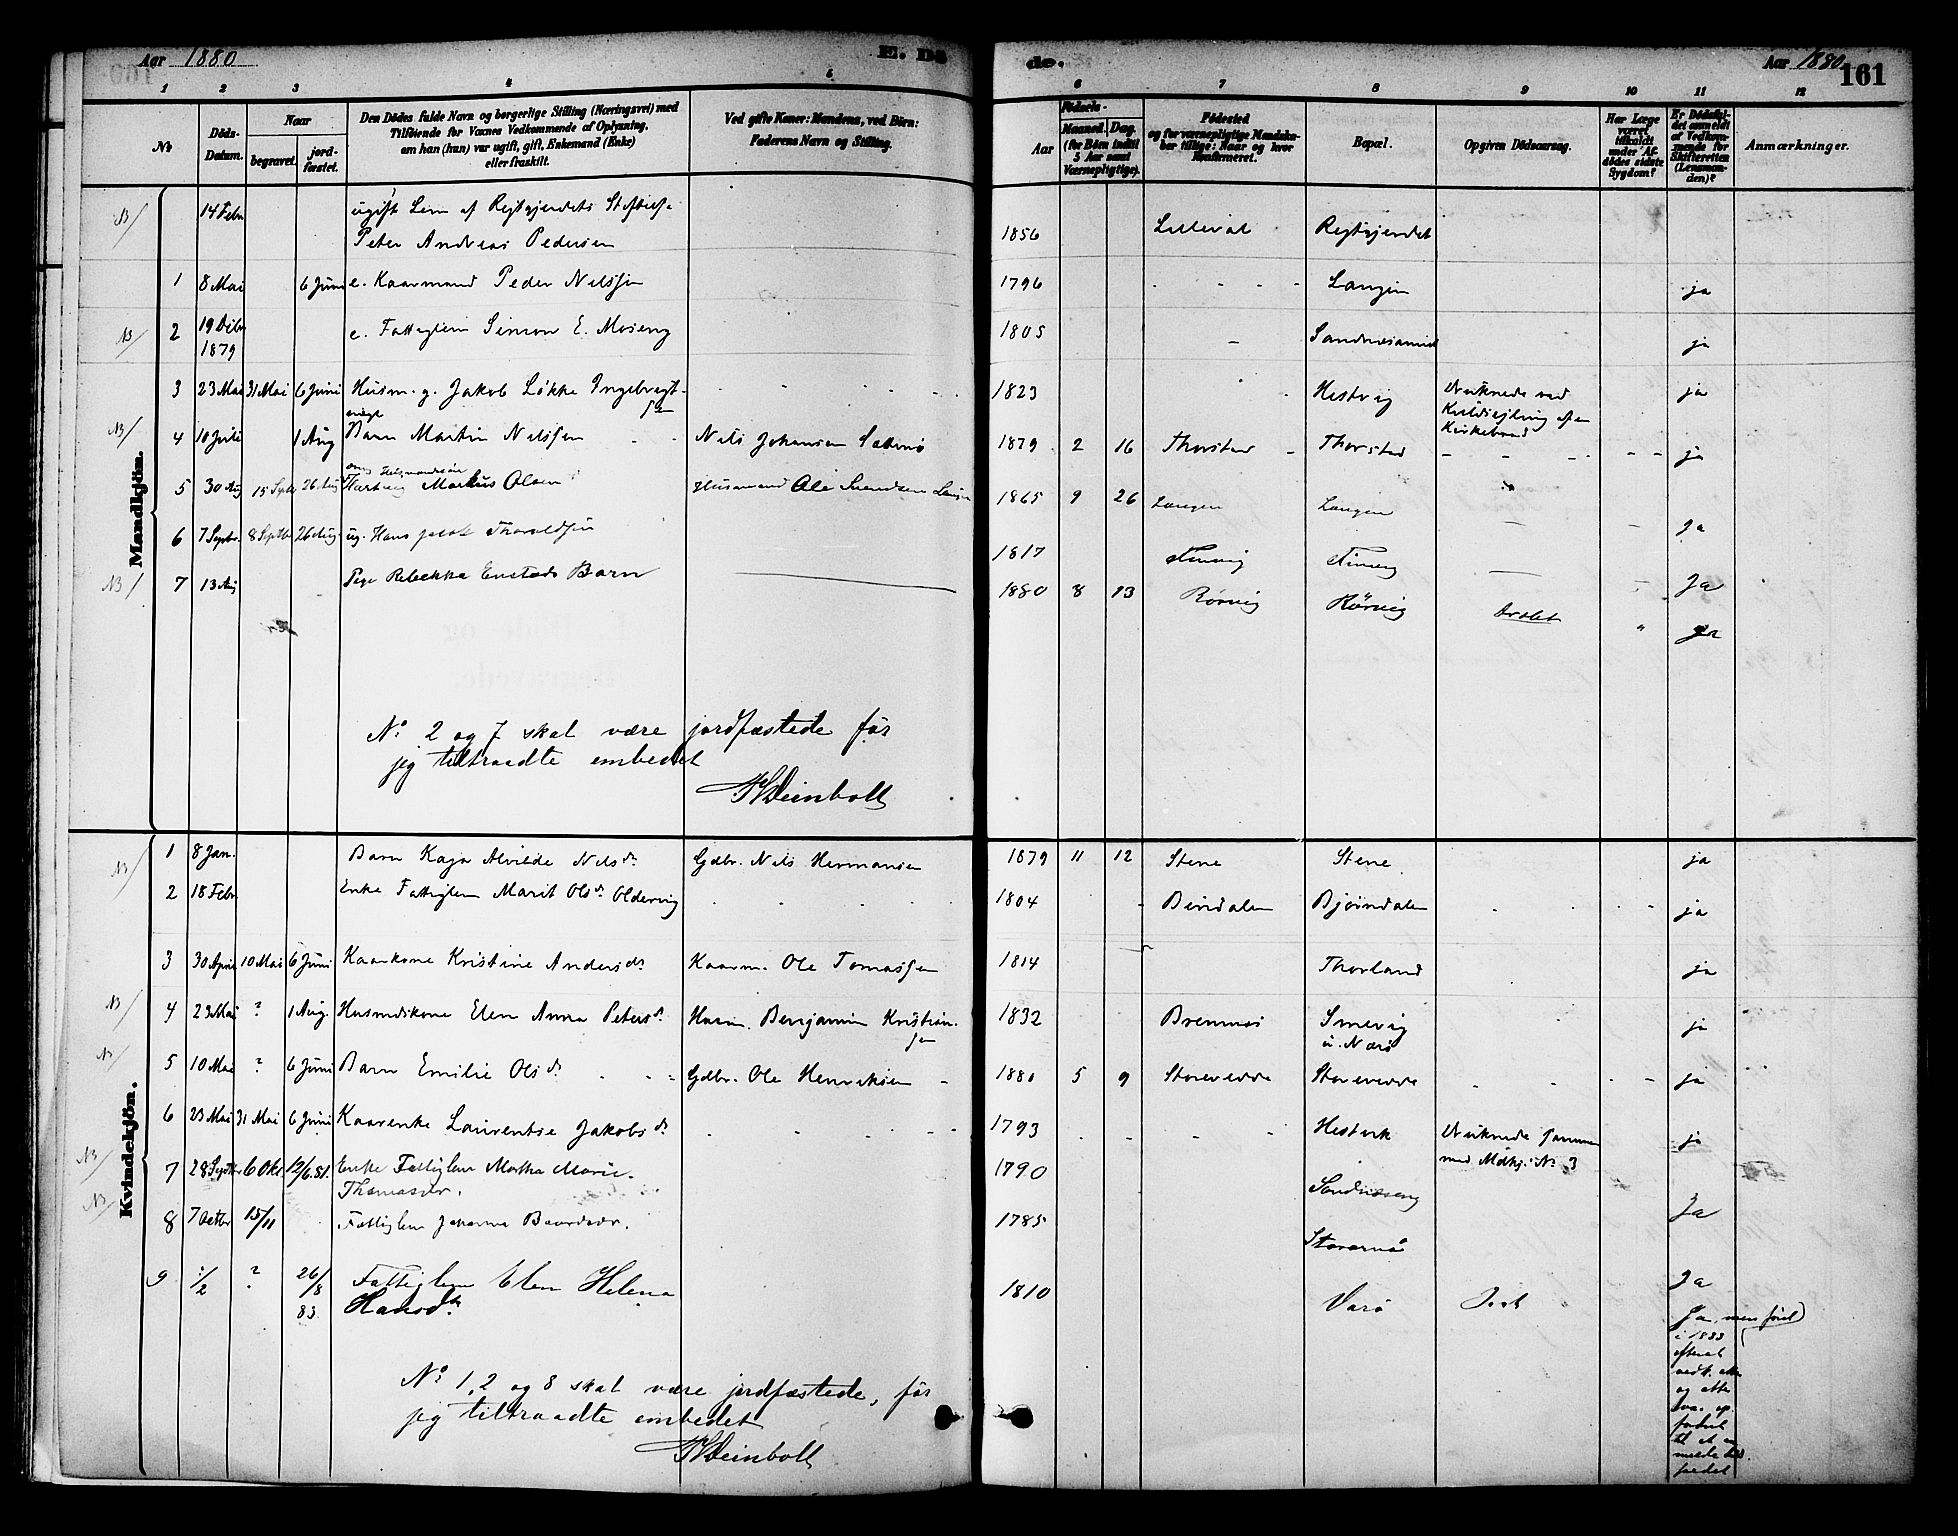 Aar 1880
E. Dø
de.
Aar 1880
161
1 2 3 4 5 6 7 8 9 10 11 12
No
Døds-Datum.
Naar
begravet.
jordfæstet.
Den Dødes fulde Navn og borgerlige Stilling (Næringsvei) med
Tilføiende for Voxnes Vedkommende af Oplysning,
om han (hun) var ugift, gift, Enkemand (Enke)
eller fraskilt.
Ved gifte Koner: Mandens, ved Børn:
Faderens Navn og Stilling.
Aar
Fødsels-
Maaned. Dag.
(for Børn indtil
5 Aar samt
Værnepligtige).
Fødested
og for værnepligtige Mandskaber tillige: Naar og hvor
konfirmeret.
Bopæl.
Opgiven Dødsaarsag.
Har Læge
været
tilkaldt
under Afdødes sidste
Sygdom?
Er Dødsfaldet anmeldt
af Vedkommende for
Skifteretten
(Lensmanden)?
Anmærkninger.
Mandkjön.
NB/ 14 Febr ugift Lem af
Peter Andreas Pedersen 1856
1 8 Mai 6 Juni e. Kaarmand Peder Nilssen 1796 Langen ja
NB/ 2 19 Debr 1879 e. Fattiglem Simon E. Moseng 1805 ja
3 23 Mai 31 Mai 6 Juni Husm. g. Jakob Løkke Ingebrigtsen 1823 Hestvig Druknede ved
Kuldsejling af en
Kirkebaad ja
NB/ 4 10 Juli 1 Aug Barn Martin Nilssen Nils Johansen 1879 2 16 Thorstad Thorstad ja
5 30 Aug 15 Septr 26 Aug Hartvig Markus Olsen Husmand Ole Svendsen Langen 1865 9 26 Langen Langen ja
6 7 Septr. 8 Septbr 26 Aug. ug. Hans Jakob Tharaldsen 1817 Finvig Finvig Ja
NB/ 7 13 Aug Pige Rebekka Enstads Barn 1880 8 13 Rørvig Rørvig Kvalt Ja
No 2 og 7 skal være jordfæstede før
jeg tiltraadte embedet
Deinboll
Kvindekjön.
NB/ 1 8 Jan. Barn Kaja Alvilde Nilsdr Gdbr. Nils Hermansen 1879 11 12 Stene Stene ja
2 18 Febr. Enke Fattiglem Marit Olsdr Oldervig 1804 Bindalen Bjørndalen ja
3 30 April 10 Mai 6 Juni Kaarkone Kristine Andersdr Kaarm. Ole Tomassen 1814 Thorland ja
NB/ 4 23 Mai ? 1 Aug. Husmdskone Elen Anna Petersdr Husm. Benjamin Kristiansen 1832 Bremnes Smevig
u. Nærø ja
NB/ 5 10 Mai ? 6 Juni Barn Emilie Olsdr Gdbr. Ole Henriksen 1880 5 9 ja
6 23 Mai 31 Mai 6 Juni Kaarenke Laurentse Jakobsdr 1793 Hestvik Druknede sammen
med Mdkj. No 3 ja
NB/ 7 28 Septbr 6 Okt. 12/6.81. Enke Fattiglem Martha Marie
Thomasdr. 1790 Sandnæseng Ja
NB/ 8 7 Octbr 15/11 Fattiglem Johanna Baardsdr. 1785 Ja
9 1/2 ? 26/8 83 Fattiglem Elen Helena
Hansdtr 1810 Varø
Ja, men først
i 1883
No 1, 2 og 8 skal være jordfæstede, før
jeg tiltraadte embedet
Deinboll